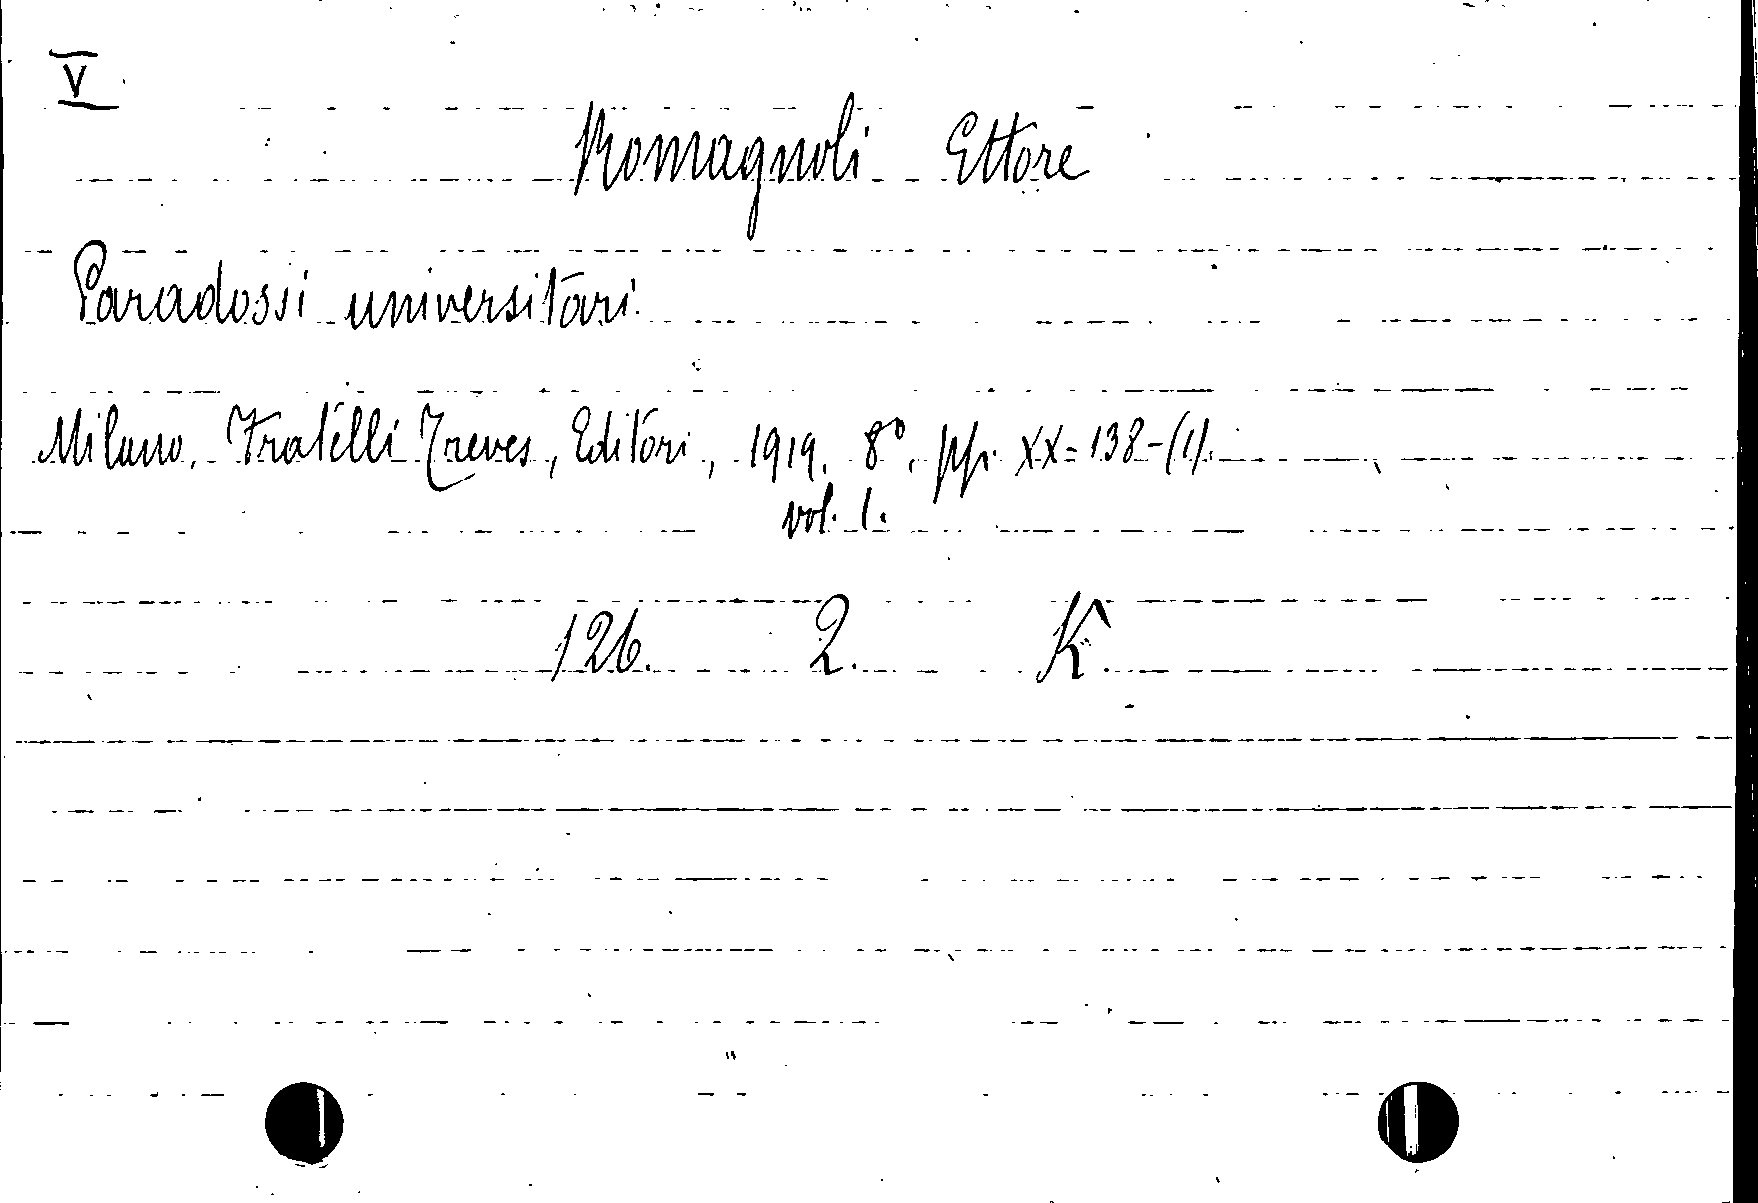 V
Romagnoli Ettore
Paradossi universitari.
Milano, Fratelli Treves, Editori, 1919. 8º, pp. XX=138-(1).
vol. 1.
126. 2. K.